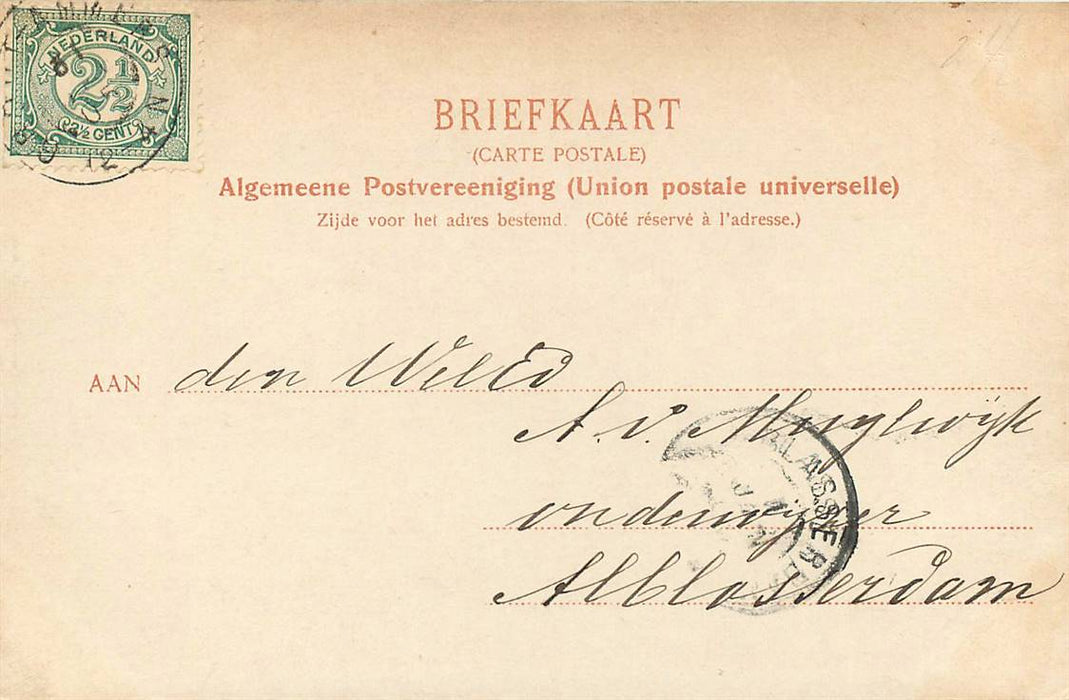 NEDERLAND
2½
2½ CENT
BRIEFKAART
(CARTE POSTALE)
Algemeene Postvereeniging (Union postale universelle)
Zijde voor het adres bestemd. (Côté réservé à l'adresse.)
AAN den WelEd
A. v. Muylwijk
onderwijzer
Alblasserdam